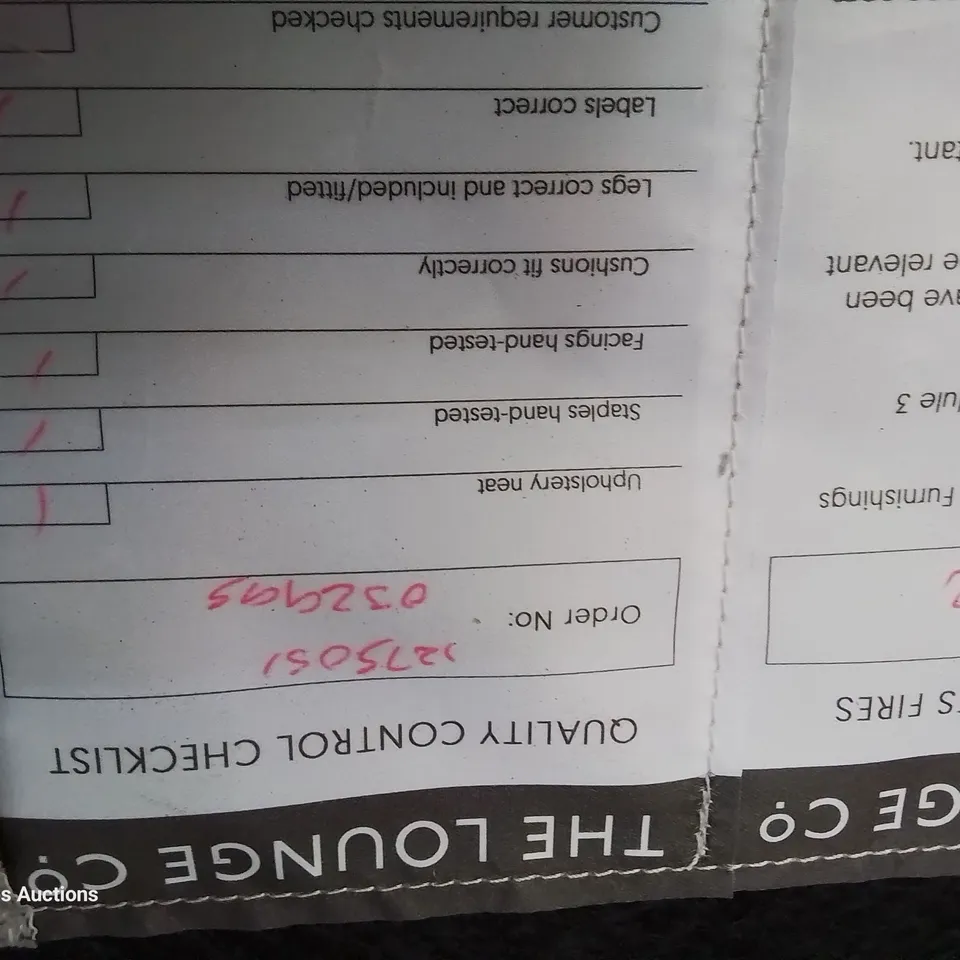 GE Co.
S FIRES
Furnishings
ule 3
ave been
e relevant
tant.
THE LOUNGE Co.
QUALITY CONTROL CHECKLIST
1275051
Order No:
Upholstery neat
Staples hand-tested
Facings hand-tested
Cushions fit correctly
Legs correct and included/fitted
Labels correct
Customer requirements checked
s Auctions